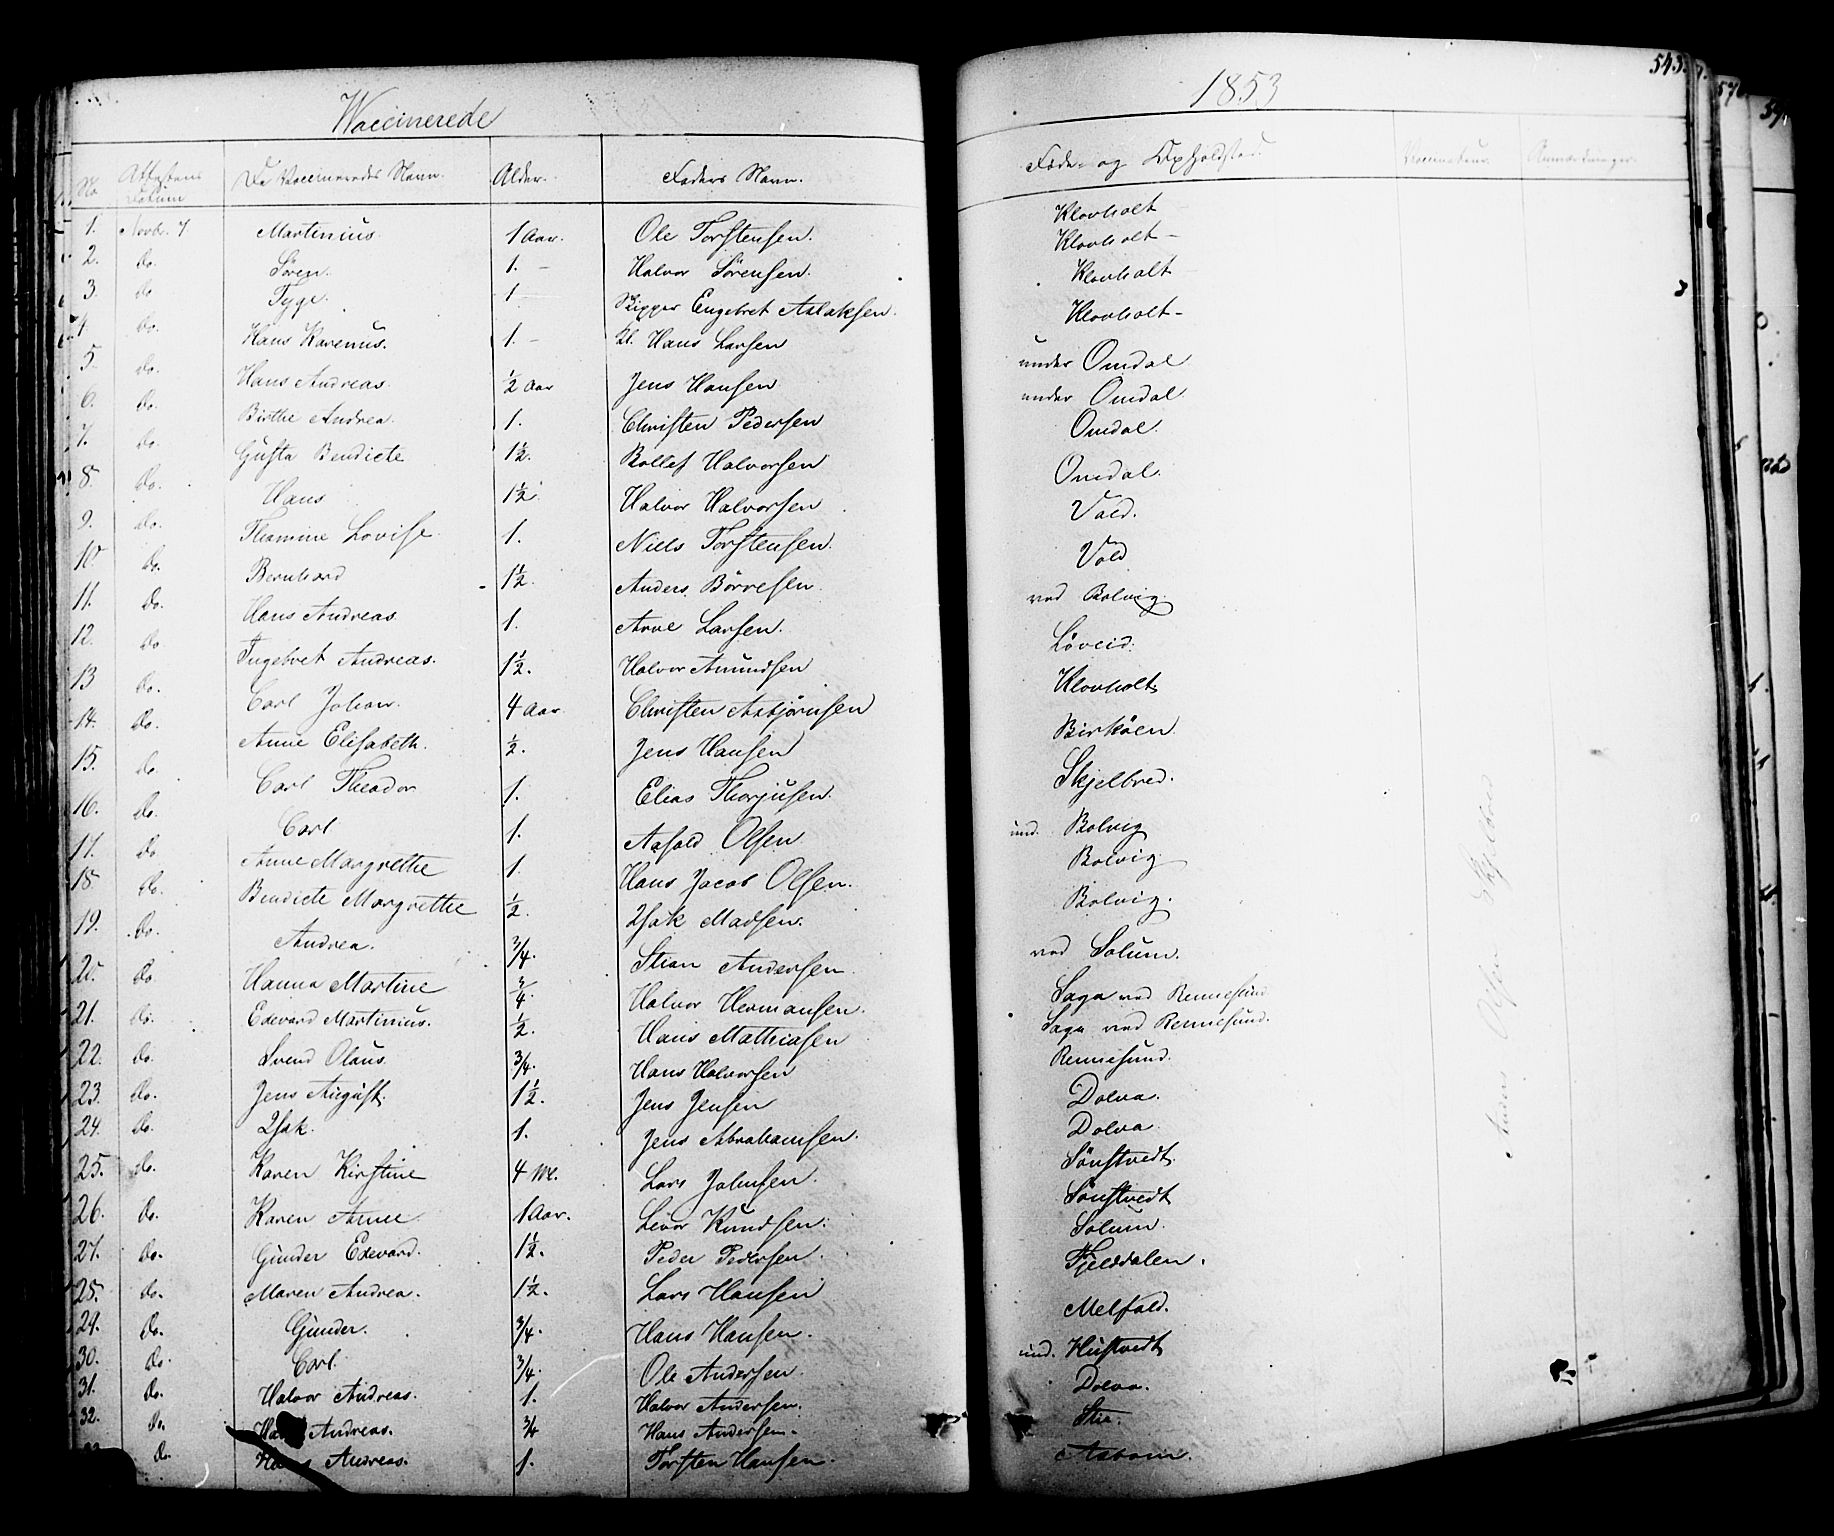 Vaccinerede 1853 543.
No Attestens Datum De Vaccineredes Navn. Alder. Faders Navn. Føde- og Opholdsted. Vaccinateur. Anmærkninger.
1. Novbr. 7 Martinius. 1 Aar. Ole Torstensen. Klovholt
2. do. Søren. 1. — Halvor Sørensen. Klovholt —
3. do Tyge. 1 Skipper Engebret Aslaksen. Klovholt
4. do. Hans Karenus. 1. — Hans Larsen Klovholt —
5. do. Hans Andreas. ½ Aar Jens Hansen under Omdal
6. do. Birthe Andrea. 1. Christen Pedersen under Omdal
7. do. Gusta Bendicte 1½. Rollef Halvorsen Omdal.
8. do. Hans 1½. Halvor Halvorsen Omdal.
9. do. Thomine Lovise. 1. Niels Torstensen. Vald.
10 do. Bernhard 1½. Anders Börresen. Vold
11. do. Hans Andreas. 1. Arve Larsen. ved Bolvig.
12. do Ingebret Andreas. 1½. Halvor Amundsen Løveid.
13 do. Carl Johan. 4 Aar Christen Asbjørnsen Klovholt
14. do. Anne Elisabeth. ½. Jens Hansen Birköen.
15. do. Carl Theodor 1. Elias Thorjusen. Skjelbred.
16. do. Carl 1. Aasold Olsen und. Bolvig
17. do Anne Margrethe 1. Hans Jacob Olsen. Bolvig
18 do. Bendicte Margrethe ½ Isak Madsen. Bolvig.
19. do. Andrea. ¾. Stian Andersen ved Solum.
20. do. Hanna Martine ¾. Halvor Hermansen. Saga ved Rennesund
21. do. Edevard Martinius. ½. Hans Mathiasen Saga ved Rennesund.
22. do. Svend Olaus. ¾. Hans Halvorsen Rennesund.
23. do. Jens August. 1½. Jens Jensen Dolva.
24. do. Isak. 1. Jens Abrahamsen. Dolva.
25. do. Karen Kirstine 4 Lars Johnsen. Sönstvedt
26. do. Karen Anne 1 Aar. Livor Knudsen. Sönstvedt
27. do. Gunder Edevard. 1½. Peder Pedersen. Solum.
28. do. Maren Andrea. 1½. Lars Hansen Fjelddalen.
29. do. Gunder. ¾. Hans Hansen. Melfald.
30. do. Carl. ¾. Ole Andersen. und. Hustvedt
31. do. Halvor Andreas. 1. Halvor Andersen. Dolva.
32. do. Andreas. ¾ Hans Andersen. Stie.
do. Andreas. 1. Torsten Hansen.